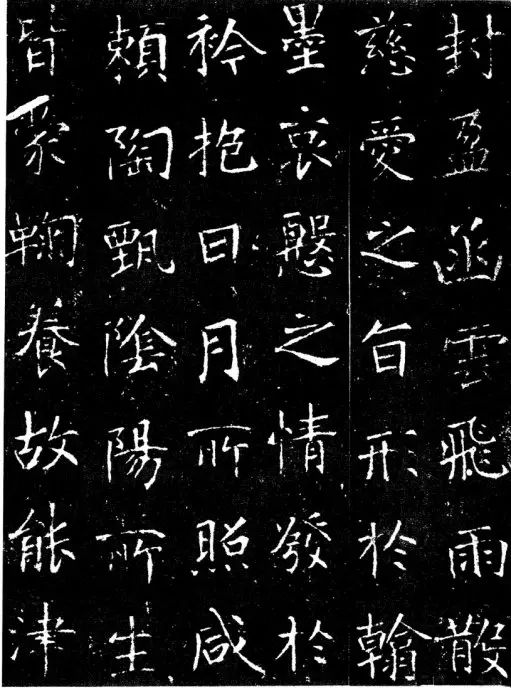 封盈函雲飛雨散
慈愛之旨形於翰
墨哀懇之情發於
衿抱日月所照咸
頼陶甄陰陽所生
皆蒙鞠養故能津